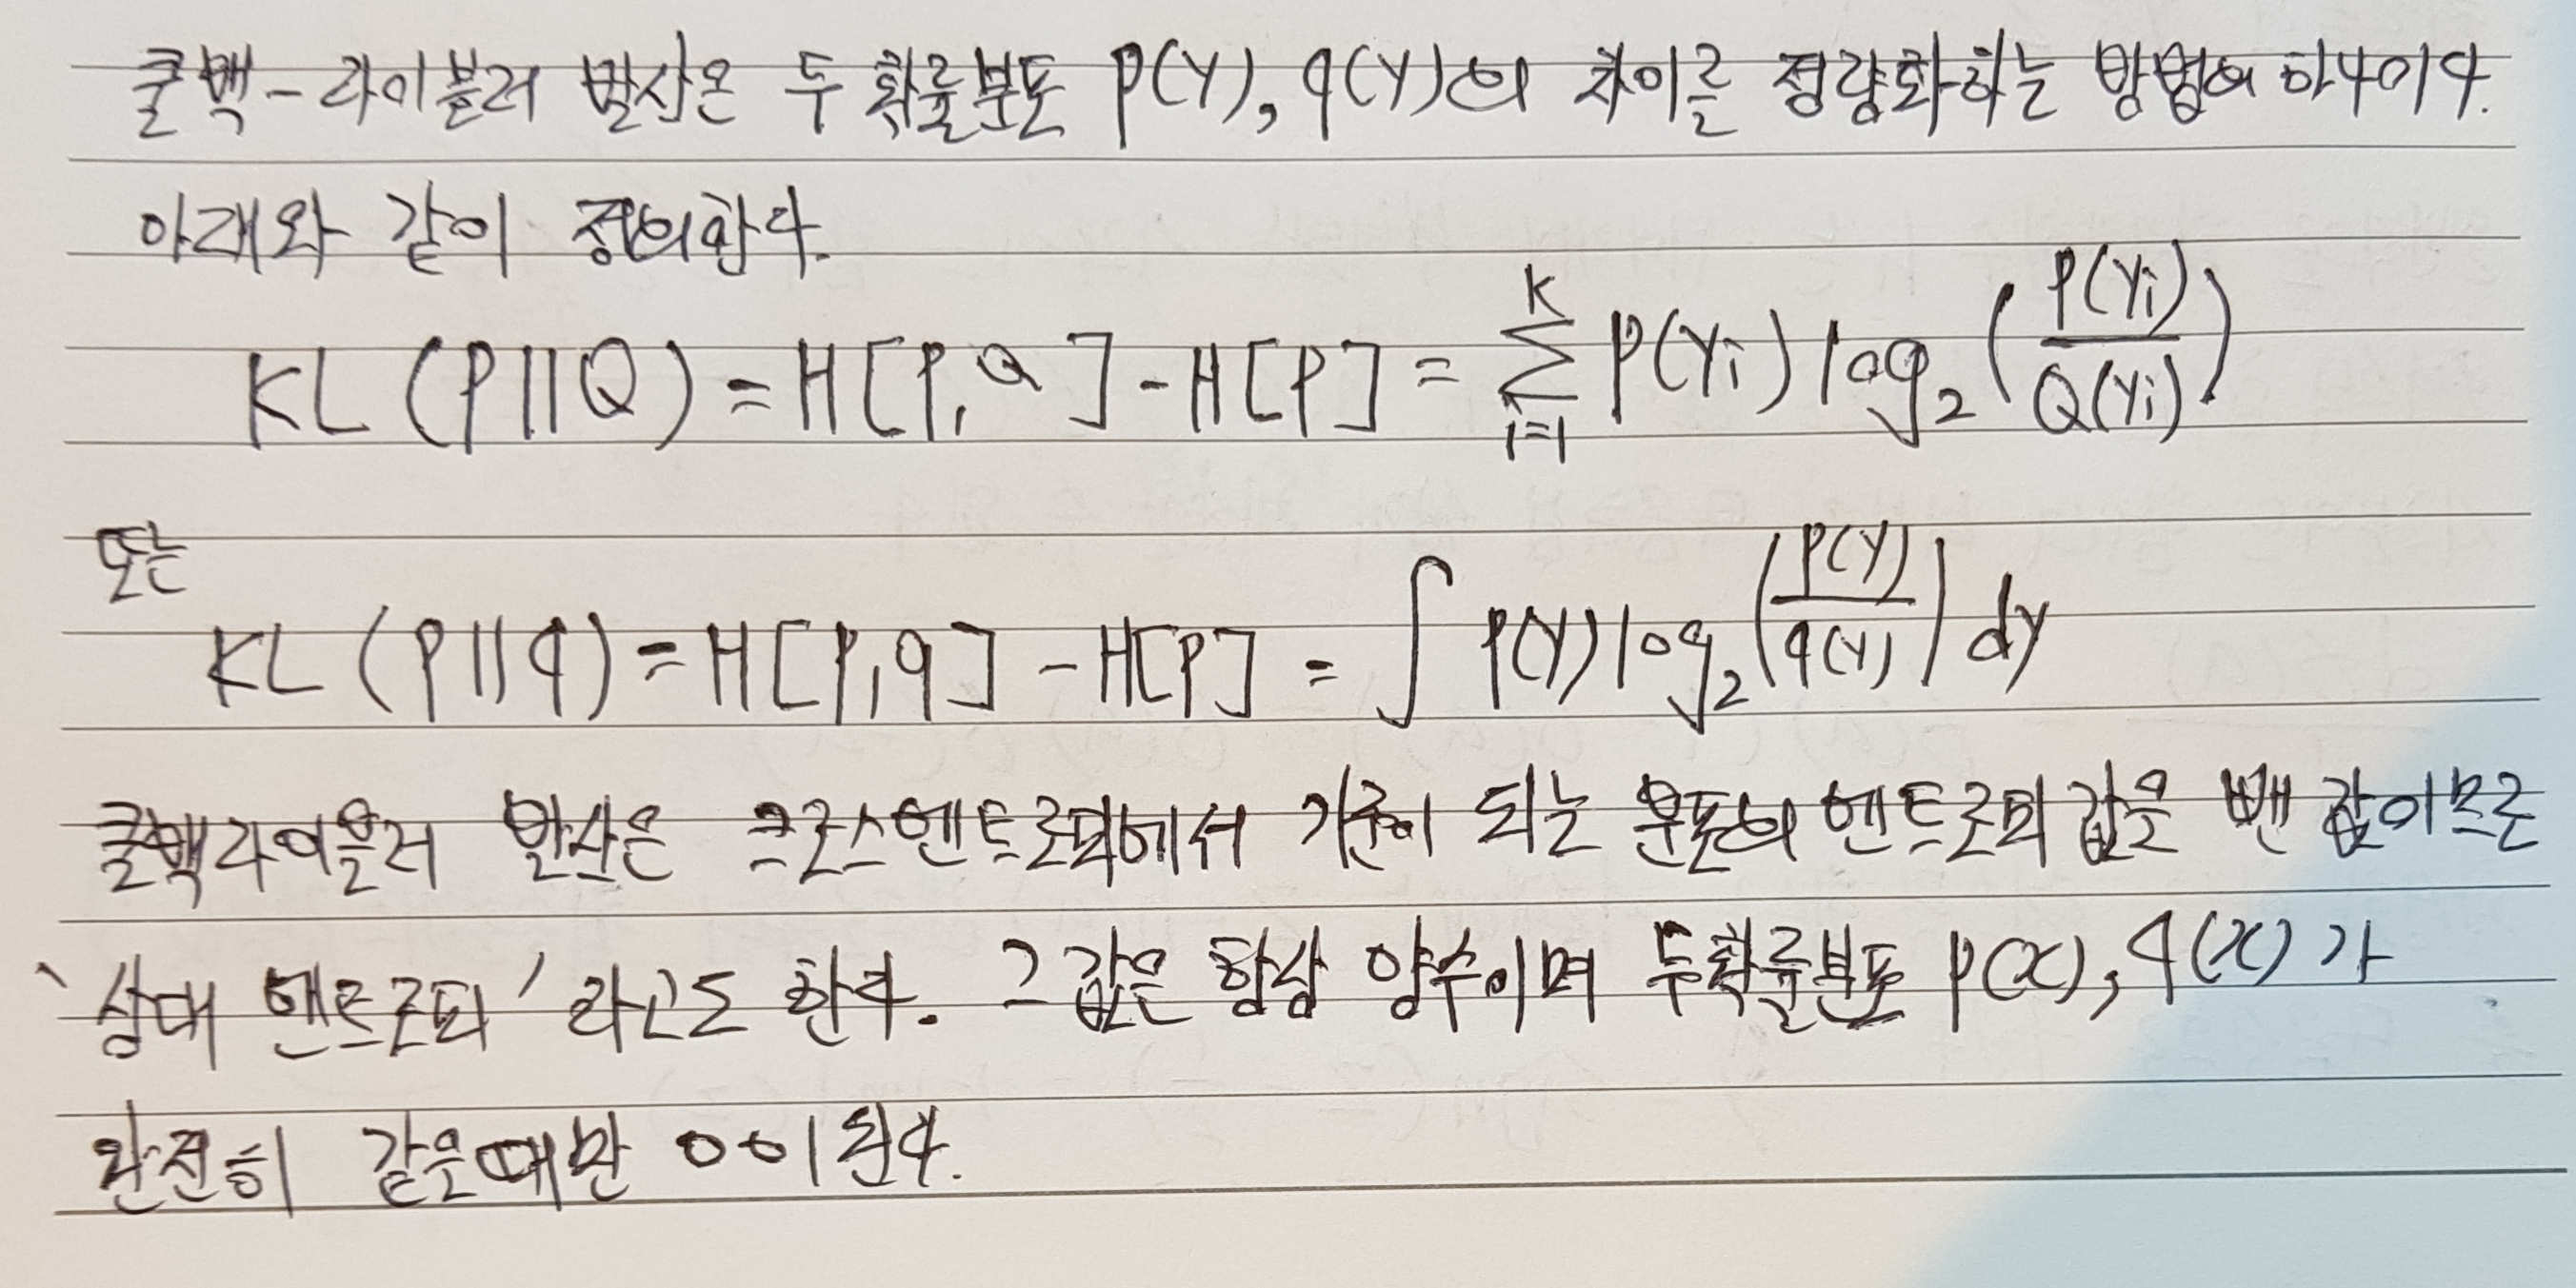 쿨백-라이블러 발산은 두 확률분포 p(y), q(y)의 차이를 정량화하는 방법의 하나이다.
아래와 같이 정의한다.
KL (P||Q) = H[P, Q] - H[P] = \sum_{i=1}^{K} P(y_i) log_2 (\frac{P(y_i)}{Q(y_i)})
또는
KL (p||q) = H[p, q] - H[p] = \int p(y) log_2 (\frac{p(y)}{q(y)}) dy
쿨백라이블러 발산은 크로스엔트로피에서 기준이 되는 분포의 엔트로피 값을 뺀 값이므로
'상대 엔트로피' 라고도 한다. 그 값은 항상 양수이며 두 확률분포 p(x), q(x) 가
완전히 같을때만 0이 된다.